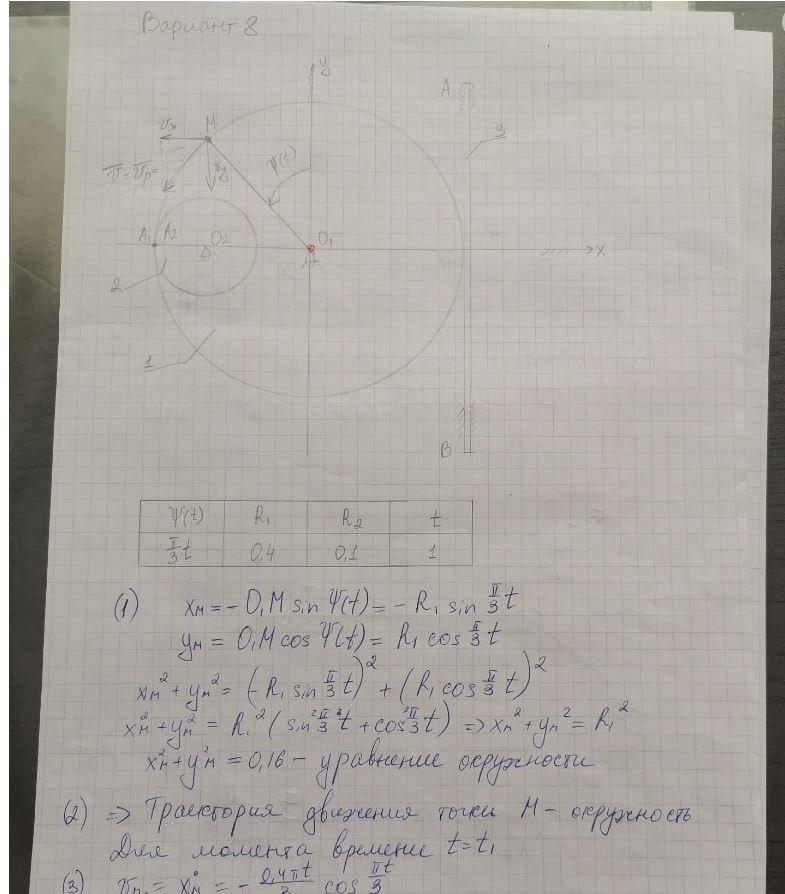 Вариант 8
y
A
M
vx
3
ψ(t)
v̅ = v̅p =
vy
A1 A2 O2 O1
x
2
1
B
ψ(t) R1 R2 t
π/3 t 0,4 0,1 1
(1) xм = - O1M sin ψ(t) = - R1 sin π/3 t
yм = O1M cos ψ(t) = R1 cos π/3 t
xм² + yм² = (- R1 sin π/3 t)² + (R1 cos π/3 t)²
xм² + yм² = R1² (sin² π/3 t + cos² π/3 t) => xм² + yм² = R1²
xм² + yм² = 0,16 - уравнение окружности
(2) => Траектория движения точки М - окружность
Для момента времени t = t1
(3) = xм = - 0,4πt/3 cos πt/3